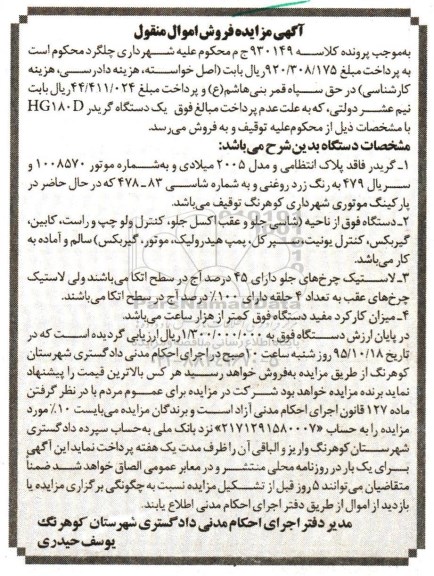 آگهی مزایده فروش اموال منقول
به‌موجب پرونده کلاسه ۹۳۰۱۴۹ ج م محکوم علیه شهرداری چلگرد محکوم است
به پرداخت مبلغ ۹۲۰/۳۰۸/۱۷۵ریال بابت (اصل خواسته، هزینه دادرسی، هزینه
کارشناسی) در حق سپاه قمر بنی‌هاشم(ع) و پرداخت مبلغ ۴۴/۴۱۱/۰۲۴ریال بابت
نیم عشر دولتی، که به علت عدم پرداخت مبالغ فوق یک دستگاه گریدر HG۱۸۰D
با مشخصات ذیل از محکوم‌علیه توقیف و به فروش می‌رسد.
مشخصات دستگاه بدین شرح می‌باشد:
۱ـ گریدر فاقد پلاک انتظامی و مدل ۲۰۰۵ میلادی و به‌شماره موتور ۱۰۰۸۵۷۰ و
سریال ۴۷۹ به رنگ زرد روغنی و به شماره شاسی ۸۳ـ۴۷۸ که در حال حاضر در
پارکینگ موتوری شهرداری کوهرنگ توقیف می‌باشد.
۲ـ دستگاه فوق از ناحیه (شاسی جلو و عقب، اکسل جلو، کنترل ولو چپ و راست، کابین،
گیربکس، کنترل یونیت، سیرکل، پمپ هیدرولیک، موتور، گیربکس) سالم و آماده به
کار می‌باشد.
۳ـ لاستیک چرخ‌های جلو دارای ۴۵ درصد آج در سطح اتکا می‌باشند ولی لاستیک
چرخ‌های عقب به تعداد ۴ حلقه دارای ۱۰۰٪ درصد آج در سطح اتکا می‌باشند.
۴ـ میزان کارکرد مفید دستگاه فوق کمتر از هزار ساعت می‌باشد.
در پایان ارزش دستگاه فوق به ۱/۳۰۰/۰۰۰/۰۰۰ریال ارزیابی گردیده است که در
تاریخ ۹۵/۱۰/۱۸ روز شنبه ساعت ۱۰صبح در اجرای احکام مدنی دادگستری شهرستان
کوهرنگ از طریق مزایده به‌فروش خواهد رسید هر کس بالاترین قیمت را پیشنهاد
نماید برنده مزایده خواهد بود شرکت در مزایده برای عموم مردم با در نظر گرفتن
ماده ۱۲۷ قانون اجرای احکام مدنی آزاد است و برندگان مزایده می‌بایست ۱۰٪ مورد
مزایده را به حساب «۲۱۷۱۲۹۱۵۸۰۰۰۷» نزد بانک ملی به‌حساب سپرده دادگستری
شهرستان کوهرنگ واریز و الباقی آن را ظرف مدت یک هفته پرداخت نماید این آگهی
برای یک بار در روزنامه محلی منتشر و در معابر عمومی الصاق خواهد شد ضمناً
متقاضیان می‌توانند ۵ روز قبل از تشکیل مزایده نسبت به چگونگی برگزاری مزایده یا
بازدید از اموال از طریق دفتر اجرای احکام مدنی اطلاع یابند.
مدیر دفتر اجرای احکام مدنی دادگستری شهرستان کوهرنگ
یوسف حیدری